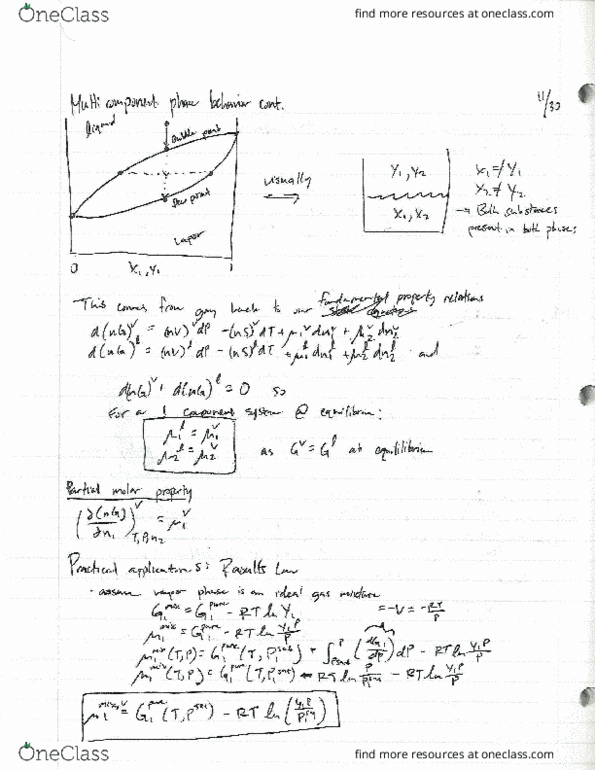 OneClass
find more resources at oneclass.com
Multi component phase behavior cont.
11/30
liquid
bubble point
dew point
vapor
0
x₁, y₁
1
usually
y₁, y₂
x₁, x₂
x₁ ≠ y₁
x₂ ≠ y₂
→ Both substances
present in both phases
This comes from going back to our fundamental property relations
d(nG)ᵛ = (nV)ᵛdP - (nS)ᵛdT + μ₁ᵛdn₁ᵛ + μ₂ᵛdn₂ᵛ
d(nG)ˡ = (nV)ˡdP - (nS)ˡdT + μ₁ˡdn₁ˡ + μ₂ˡdn₂ˡ and
d(nG)ᵛ + d(nG)ˡ = 0 so
For a 1 component system @ equilibrium:
μ₁ˡ = μ₁ᵛ
μ₂ˡ = μ₂ᵛ
as Gᵛ = Gˡ at equilibrium
Partial molar property
(∂(nG)/∂n₁)ᵛ T,P,n₂ = μ₁ᵛ
Practical applications: Raoult's Law
- assume vapor phase is an ideal gas mixture
G₁ᵐⁱˣ = G₁ᵖᵘʳᵉ - RT ln y₁
= -V = -RT/P
μ₁ᵐⁱˣ = G₁ᵖᵘʳᵉ - RT ln y₁P/P
μ₁ᵐⁱˣ(T,P) = G₁ᵖᵘʳᵉ(T, P₁ˢᵃᵗ) + ∫ₚₛₐₜᴾ (dG₁/dP) dP - RT ln y₁P/P
μ₁ᵐⁱˣ(T,P) = G₁ᵖᵘʳᵉ(T, P₁ˢᵃᵗ) - RT ln P/P₁ˢᵃᵗ - RT ln y₁P/P
μ₁ᵐⁱˣ,ᵛ = G₁ᵖᵘʳᵉ(T, Pˢᵃᵗ) - RT ln (y₁P/P₁ˢᵃᵗ)
OneClass
find more resources at oneclass.com